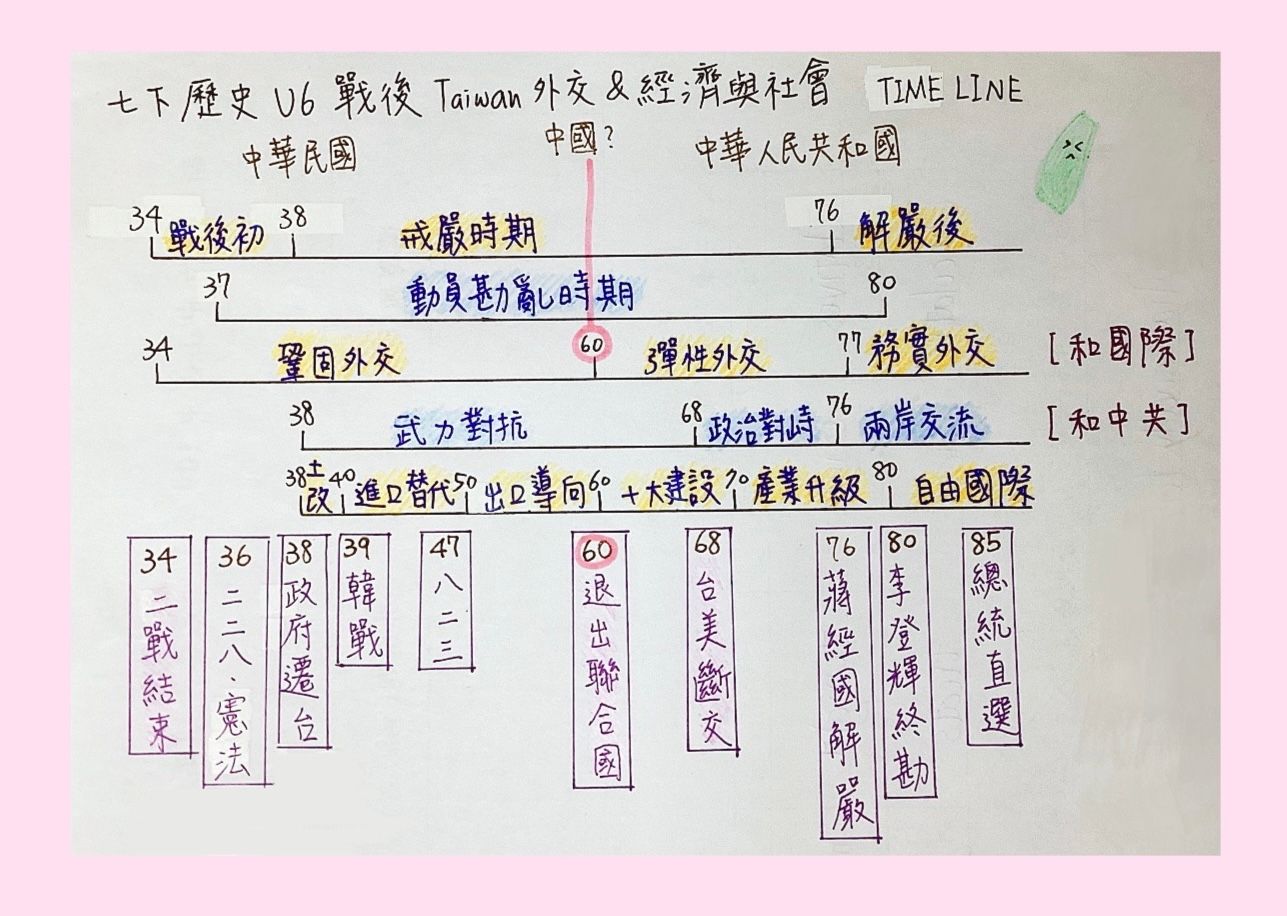 七下歷史 U6 戰後 Taiwan 外交 & 經濟與社會 TIME LINE
中華民國 中國? 中華人民共和國
34 戰後初 38 戒嚴時期 76 解嚴後
37 動員勘亂時期 80
34 鞏固外交 60 彈性外交 77 務實外交 [和國際]
38 武力對抗 68 政治對峙 76 兩岸交流 [和中共]
38 土改 40 進口替代 50 出口導向 60 十大建設 70 產業升級 80 自由國際
34 二戰結束
36 二二八.憲法
38 政府遷台
39 韓戰
47 八二三
60 退出聯合國
68 台美斷交
76 蔣經國解嚴
80 李登輝終勘
85 總統直選